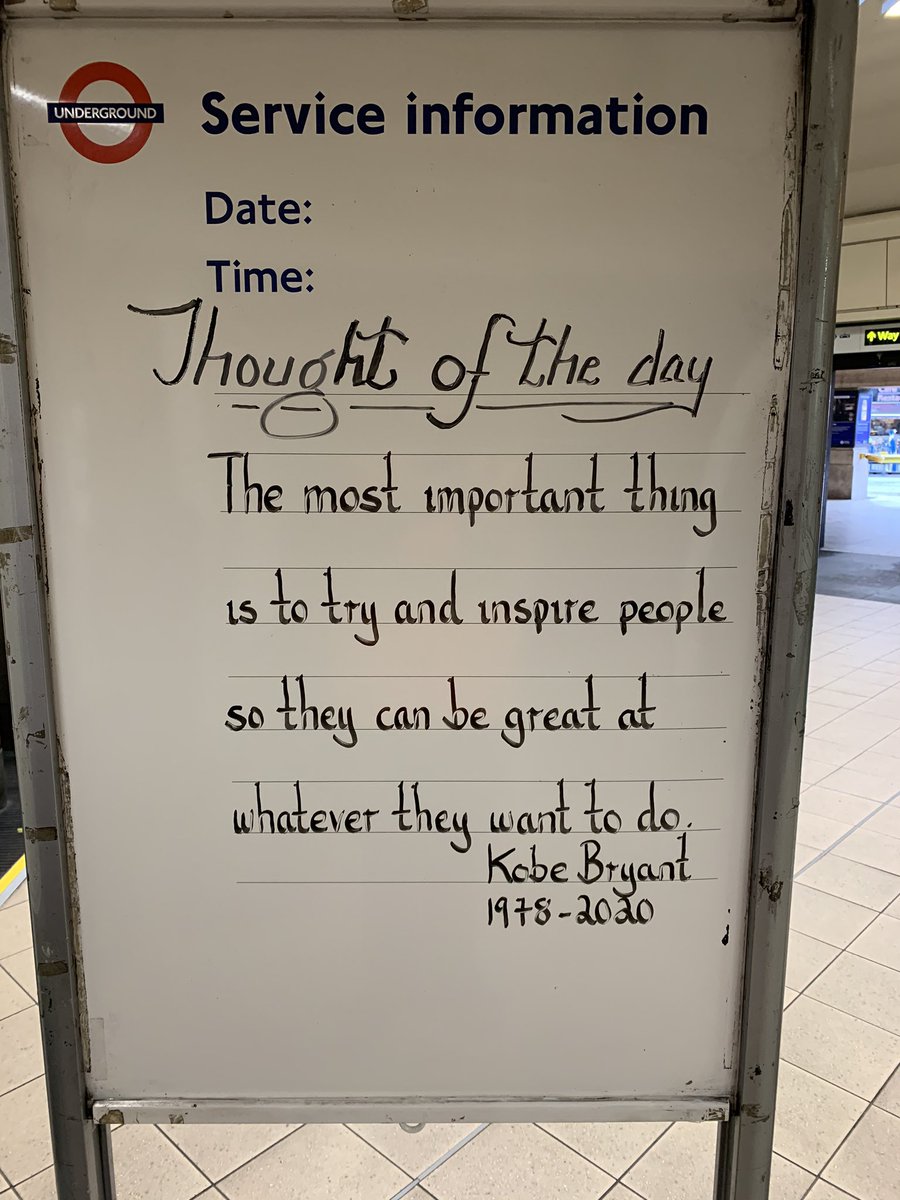 UNDERGROUND
Service information
Date:
Time:
Thought of the day
The most important thing
is to try and inspire people
so they can be great at
whatever they want to do.
Kobe Bryant
1978-2020
Way